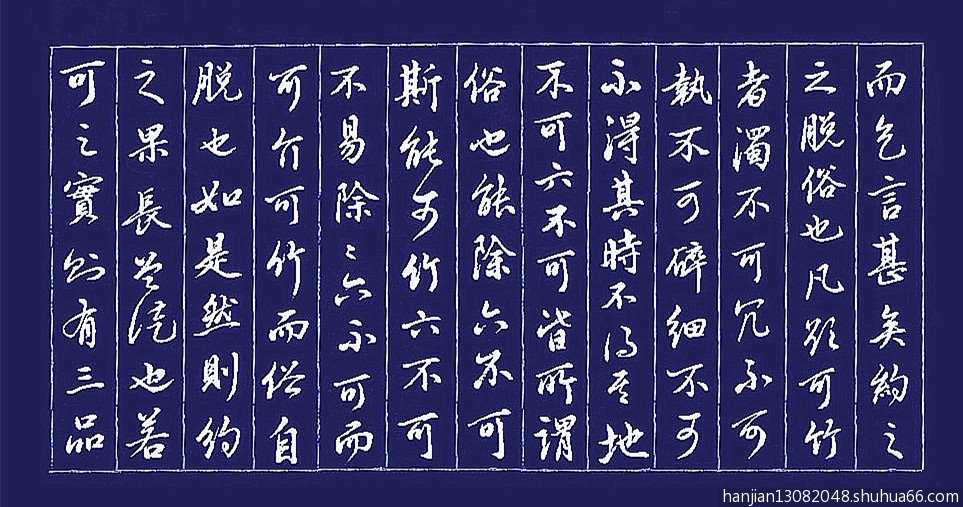 而乞言甚矣約之
之脱俗也凡欲可竹
者濁不可冗不可
執不可碎細不可
不得其時不得其地
不可六不可皆所謂
俗也能除六不可
斯能可竹六不可
不易除々六不可而
可介可竹而俗自
脱也如是然則約
之果長也若
可之實則有三品
hanjian13082048.shuhua66.com